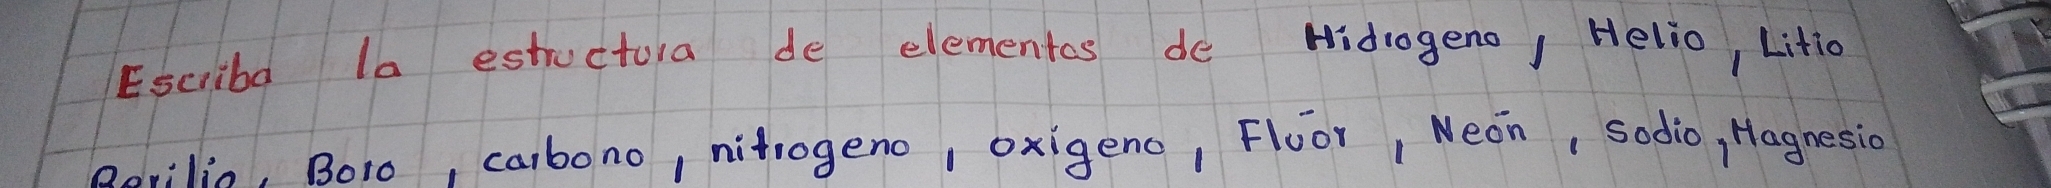 Escriba la estructura de elementos de Hidrogeno, Helio, Litio
Berilio, Boro, carbono, nitrogeno, oxigeno, Flúor, Neón, sodio, Magnesio